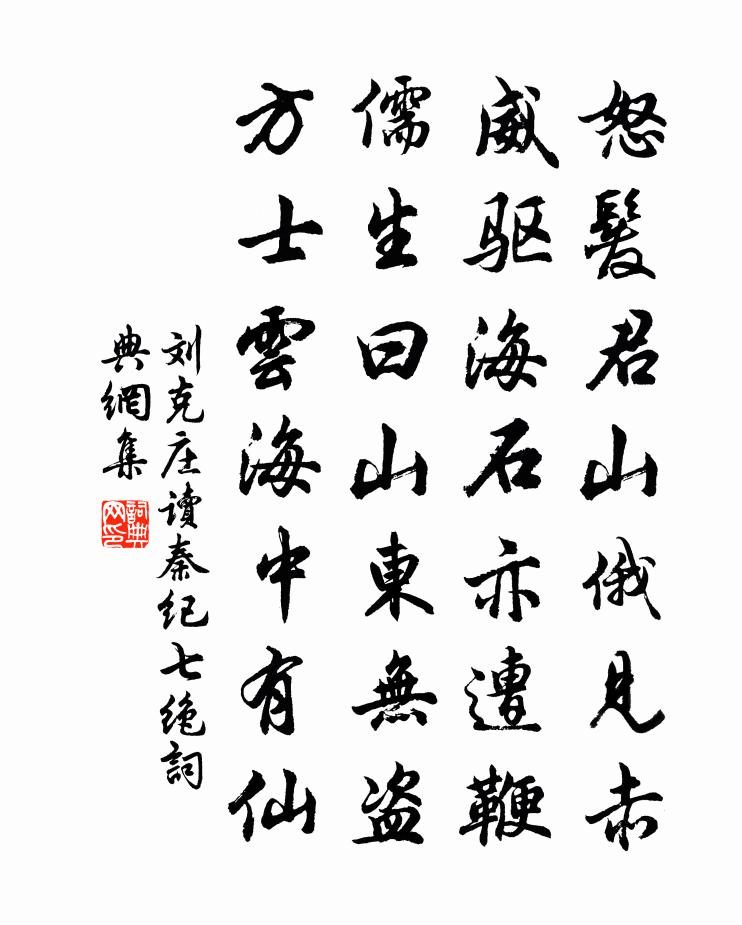 怒髮君山俄見赤
威驱海石亦遭鞭
儒生曰山東無盗
方士雲海中有仙
刘克庄讀秦纪七绝詞
典網集
詞典
网印